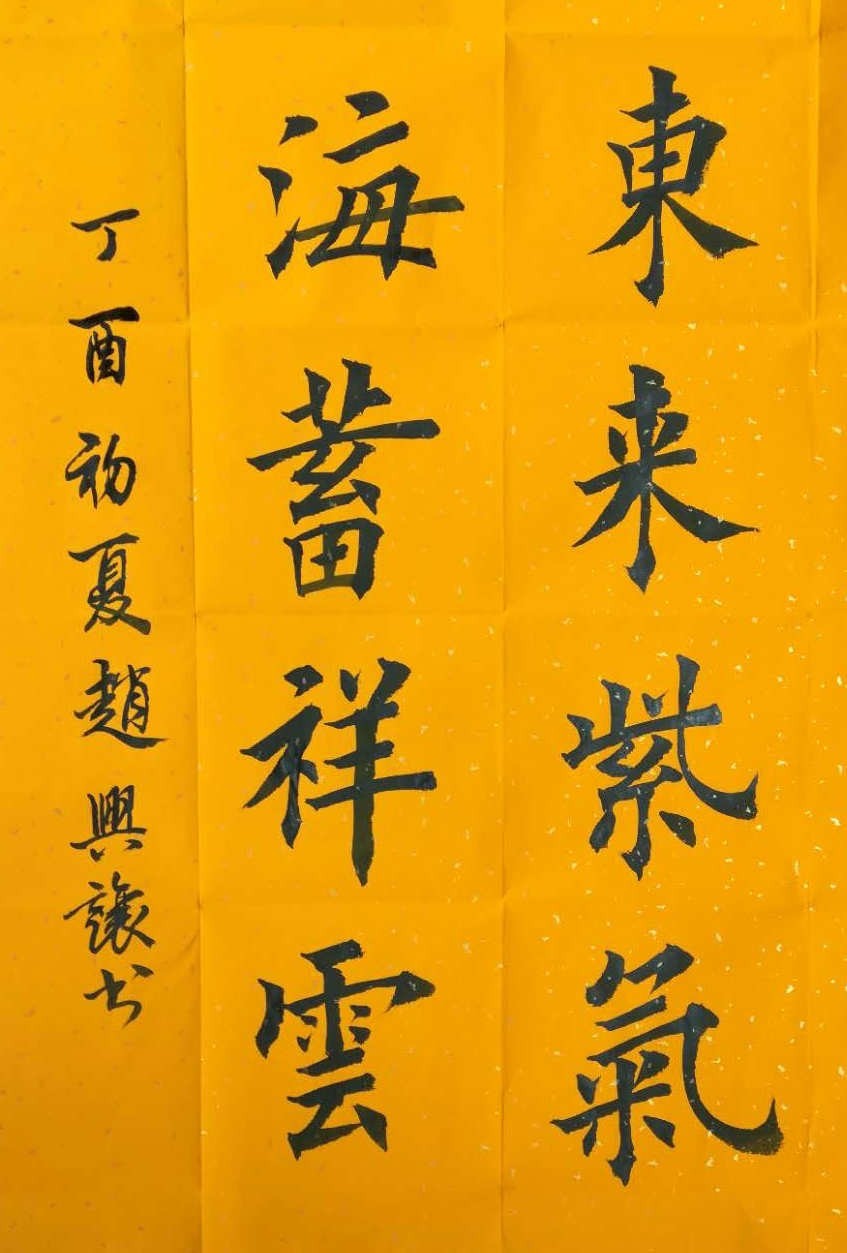 東来紫氣
海蓄祥雲
丁酉初夏趙興讓书